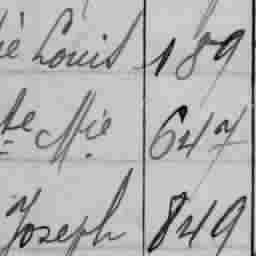 ie Louis 189
te Mie 647
Joseph 849